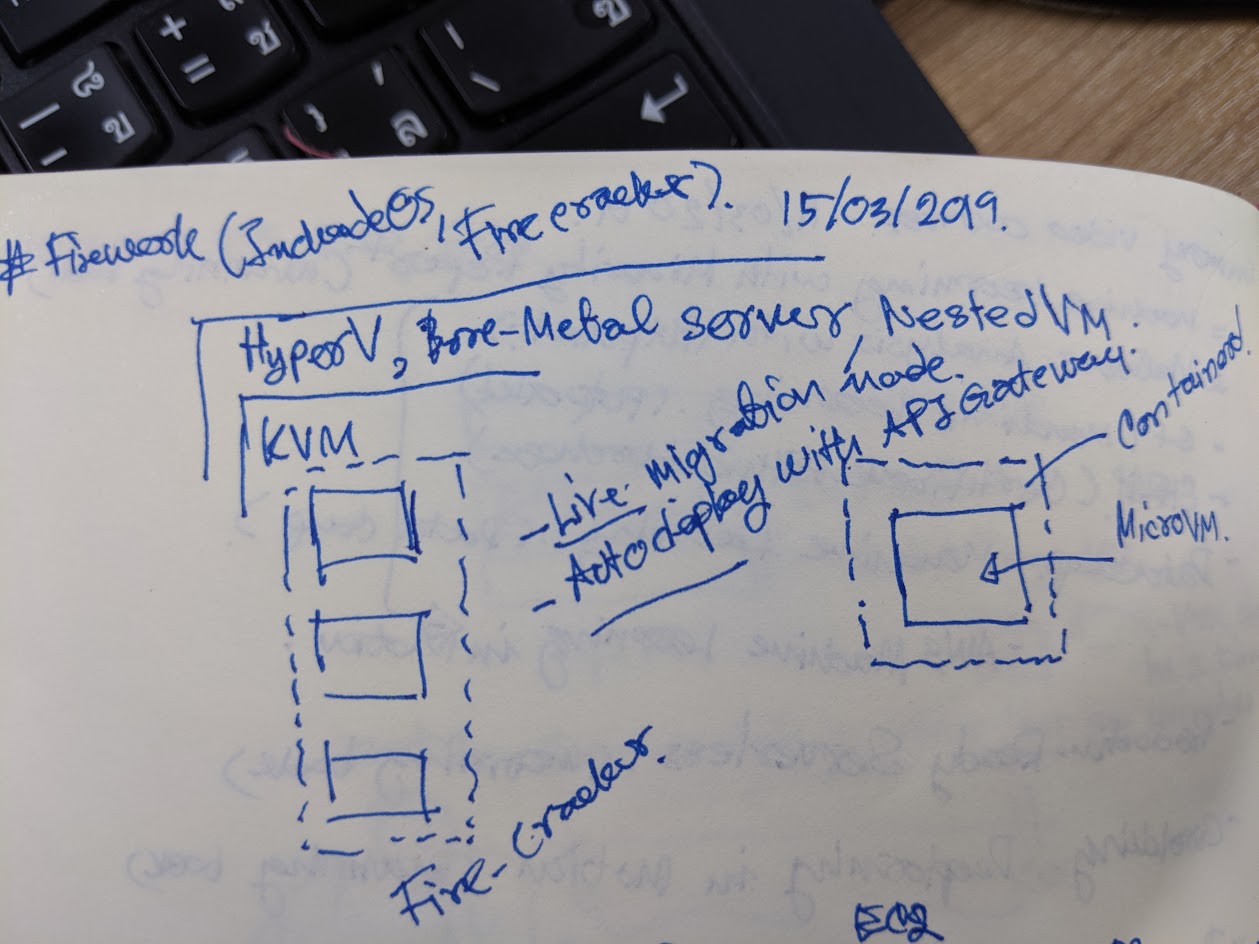 # Firework (IncludeOS, Firecracker). 15/03/2019.
HyperV, Bare-Metal server, NestedVM.
KVM
- Live migration node.
- Autodeploy with API Gateway.
Containerd.
MicroVM.
Fire-cracker.
EC2